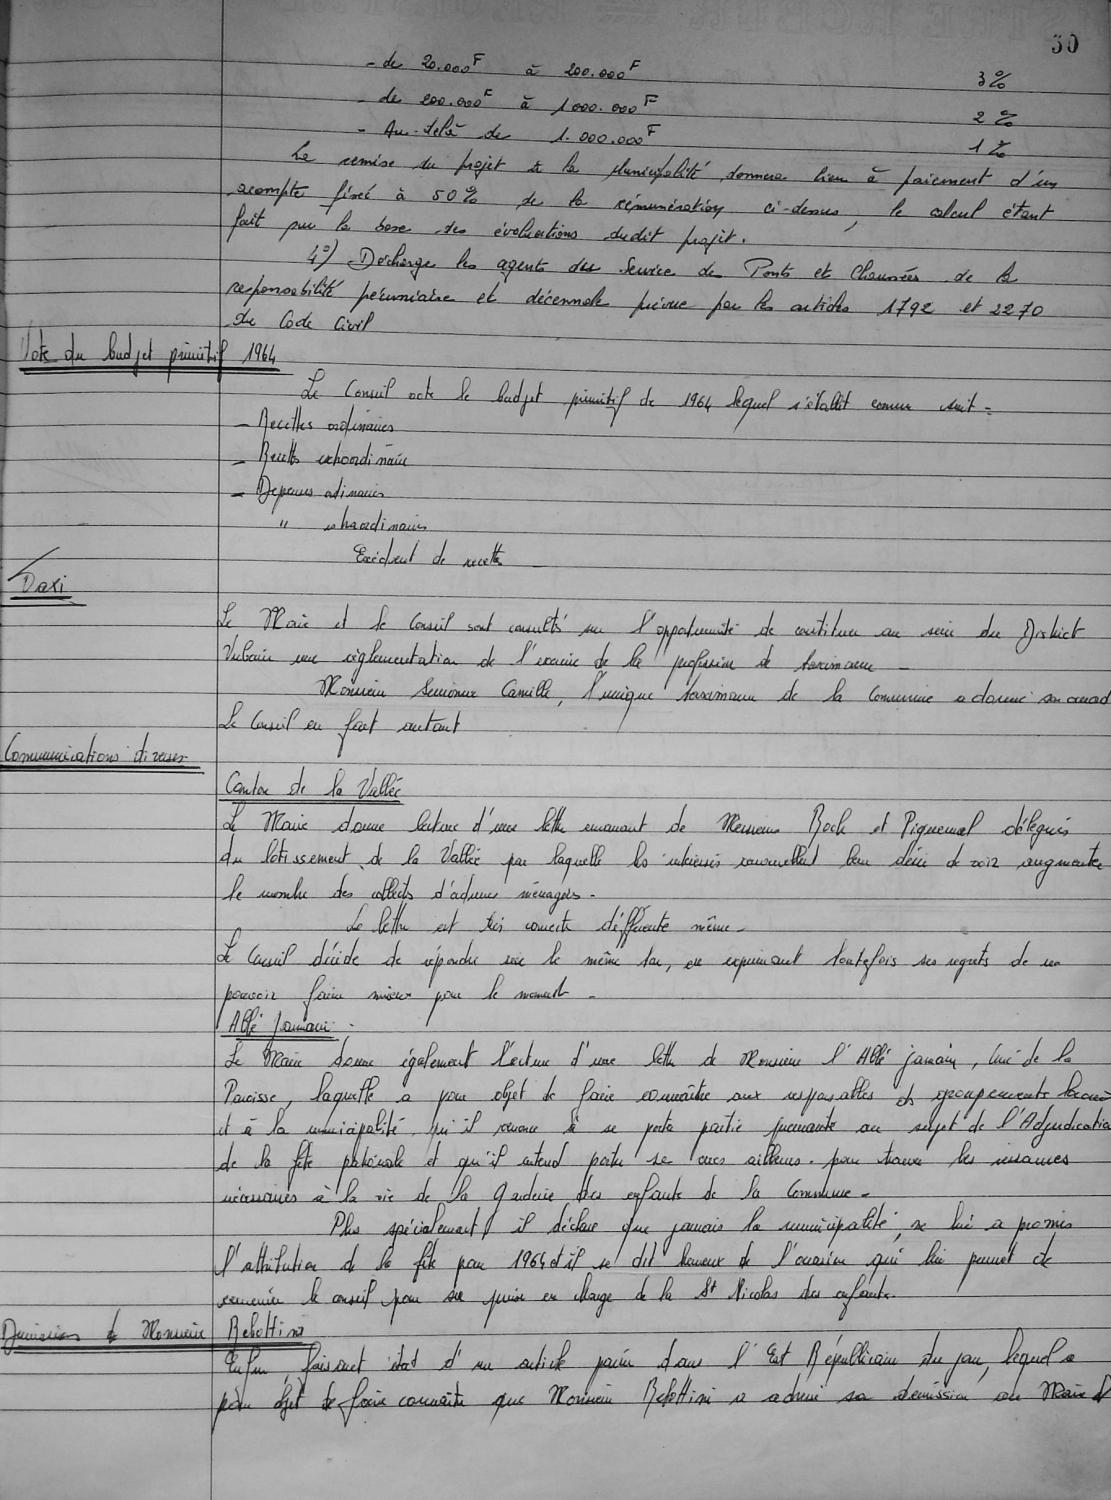 30
- de 20.000F à 200.000F 3%
- de 200.000F à 1000.000F 2%
- Au-delà de 1.000.000F 1%
La remise du projet à la Municipalité donnera lieu à paiement d'un
acompte fixé à 50% de la rémunération ci-dessus, le calcul étant
fait sur la base des évaluations dudit projet.
4°) Décharge les agents du Service des Ponts et Chaussées de la
responsabilité pécuniaire et décennale prévue par les articles 1792 et 2270
du Code Civil
Vote du budget primitif 1964
Le Conseil vote le budget primitif de 1964 lequel s'établit comme suit =
- Recettes ordinaires
- Recettes extraordinaire
- Depenses ordinaires
" extraordinaires
Excédent de recettes
Taxi
Le Maire et le Conseil sont consultés sur l'opportunité de constituer au sein du District
Urbain une réglementation de l'exercice de la profession de taximane -
Monsieur Camille, l'unique taximane de la Commune a donné son accord
Le Conseil en fait autant
Communications diverses
Canton de la Vallée
Le Maire donne lecture d'une lettre emanant de Messieurs Bock et Piquemal délégués
du lotissement de la Vallée par laquelle les intéressés renouvellent leur désir de voir augmenter
le nombre des collectes d'ordures ménagères -
La lettre est très correcte déférente même -
Le Conseil décide de répondre sur le même ton, en exprimant toutefois ses regrets de ne
pouvoir faire mieux pour le moment -
Abbé Jamain -
Le Maire donne également lecture d'une lettre de Monsieur l'Abbé Jamain, Curé de la
Paroisse, laquelle a pour objet de faire connaître aux responsables et groupements locaux
et à la municipalité qu'il renonce à se porter partie prenante au sujet de l'Adjudication
de la fête patronale et qu'il entend porter ses vues ailleurs pour trouver les ressources
nécessaires à la vie de la garderie des enfants de la Commune -
Plus spécialement il déclare que jamais la municipalité ne lui a promis
l'attribution de la fête pour 1964 et il se dit heureux de l'occasion qui lui permet de
remercier le conseil pour sa prise en charge de la St Nicolas des enfants.
Demission de Monsieur Rebottini
Enfin faisant état d'un article paru dans l'Est Républicain du jour, lequel a
pour objet de faire connaître que Monsieur Rebottini a adressé sa démission au Maire d